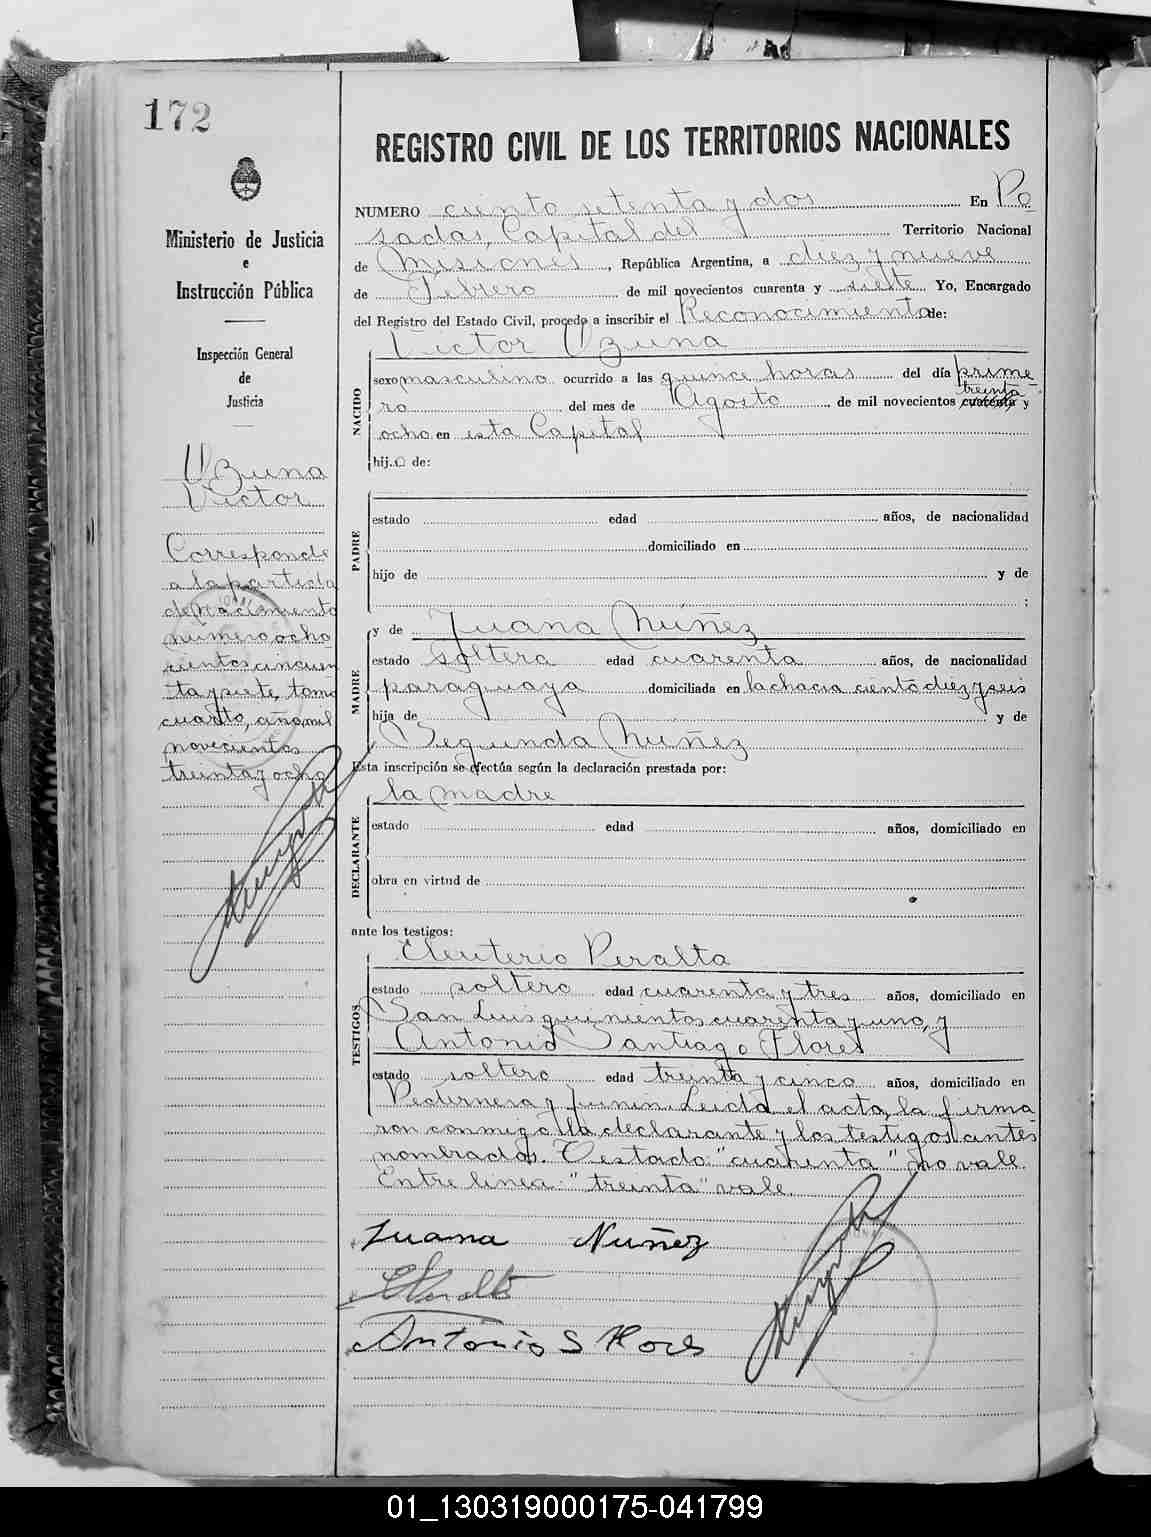 172
REGISTRO CIVIL DE LOS TERRITORIOS NACIONALES
Ministerio de Justicia
e
Instrucción Pública
Inspección General
de
Justicia
Ozuna
Victor
Corresponde
a la partida
de nacimiento
numero ocho
cientos cincuen
ta y siete, tomo
cuarto, año mil
novecientos
treinta y ocho
NUMERO ciento setenta y dos En Po
sadas, Capital del Territorio Nacional
de Misiones, República Argentina, a diez y nueve
de Febrero de mil novecientos cuarenta y siete Yo, Encargado
del Registro del Estado Civil, procedo a inscribir el Reconocimiento de:
Victor Ozuna
NACIDO
sexo masculino ocurrido a las quince horas del día prime
treinta
ro del mes de Agosto de mil novecientos cuarenta y
ocho en esta Capital
hijo de:
PADRE
estado edad años, de nacionalidad
domiciliado en
hijo de y de
;
y de Juana Núñez
MADRE
estado soltera edad cuarenta años, de nacionalidad
paraguaya domiciliada en la chacra ciento diez y seis
hija de y de
Segunda Núñez
Esta inscripción se efectúa según la declaración prestada por:
la madre
DECLARANTE
estado edad años, domiciliado en
obra en virtud de
ante los testigos:
Eleuterio Peralta
TESTIGOS
estado soltero edad cuarenta y tres años, domiciliado en
San Luis quinientos cuarenta y uno, y
Antonio Santiago Flores
estado soltero edad treinta y cinco años, domiciliado en
Pedernera y Junin. Leida el acta, la firma
ron conmigo la declarante y los testigos antes
nombrados. Testado: "cuarenta" no vale.
Entre linea: "treinta" vale.
Juana Nuñez
EPeralta
Antonio S Flores
01_130319000175-041799